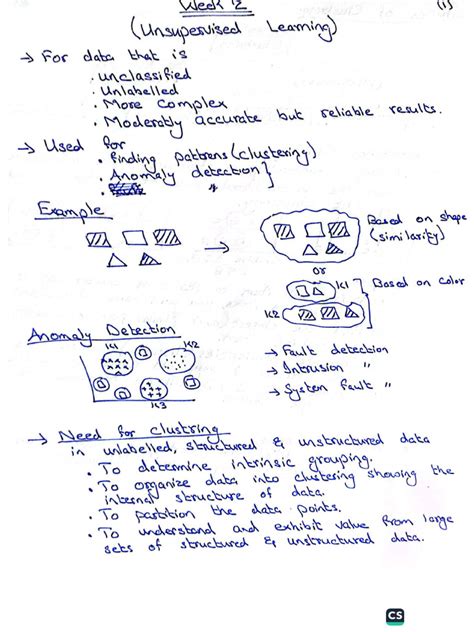 Week 12
(1)
(Unsupervised Learning)
→ For data that is
. unclassified
. Unlabelled
. More Complex
. Moderably accurate but reliable results.
→ Used for
. finding pattrens (clustering)
. Anomaly detection}
Example
→
Based on shape
(similarity)
or
K1
Based on color
K2
Anomaly Detection
K1
K2
K3
→ Fault detection
→ Intrusion "
→ System fault "
→ Need for clustring
in unlabelled, structured & unstructured data
. To determine intrinsic grouping.
. To organize data into clustering showing the
internal structure of data.
. To partition the data points.
. To understand and exhibit value from large
sets of structured & unstructured data.
CS